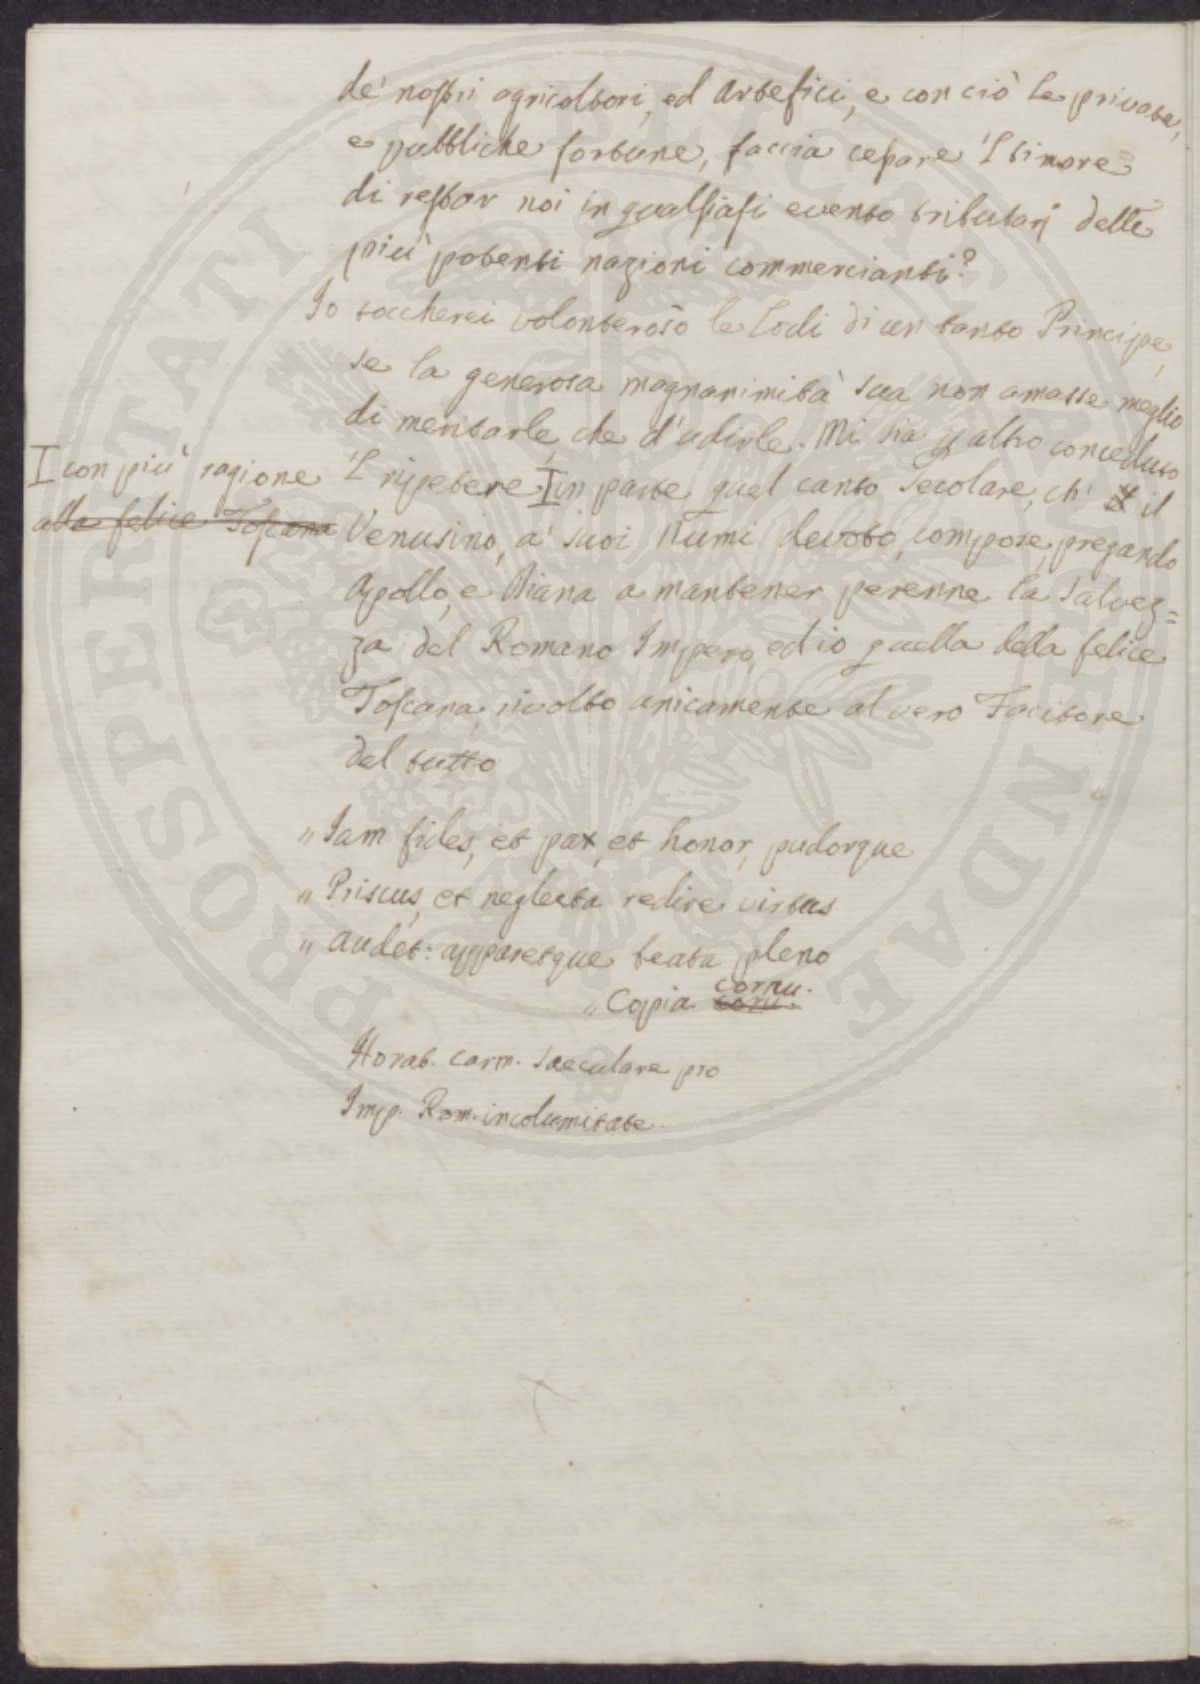 de' nostri agricoltori, ed Artefici, e con ciò le private,
e pubbliche fortune, faccia cessare 'l timore
di restar noi in qualsiasi evento tributarj delle
più potenti nazioni commercianti?
Io toccherei volonteroso le Lodi di un tanto Principe,
se la generosa magnanimità sua non amasse meglio
di meritarle, che d'udirle. Mi sia p altro conceduto
I con più ragione
alla felice Toscana
'L ripetere I in parte quel canto secolare, ch' il
Venusino, a' suoi Numi devoto, compose, pregando
Apollo, e Diana a mantener perenne la salvez=
za del Romano Impero, ed io quella della felice
Toscana, rivolto unicamente al vero Facitore
del tutto
„ Iam fides, et pax, et honor, pudorque
„ Priscus, et neglecta redire virtus
„ Audet: apparetque beata pleno
cornu.
„ Copia conu.
Horat. carm. saeculare pro
Imp. Rom. incolumitate.
PROSPERITATI PUBLICAE AUGENDAE